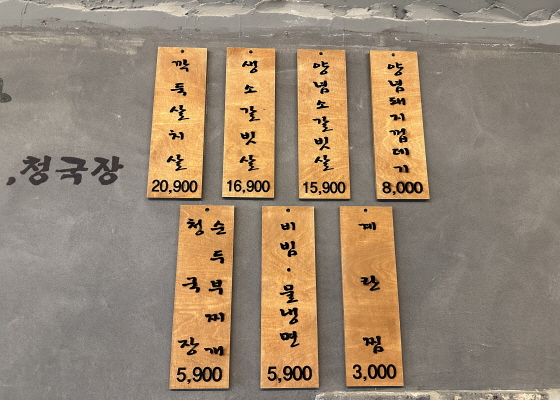 깍둑살치살
20,900
생소갈빗살
16,900
양념소갈빗살
15,900
양념돼지껍데기
8,000
,청국장
청국장
순두부찌개
5,900
비빔·물냉면
5,900
계란찜
3,000